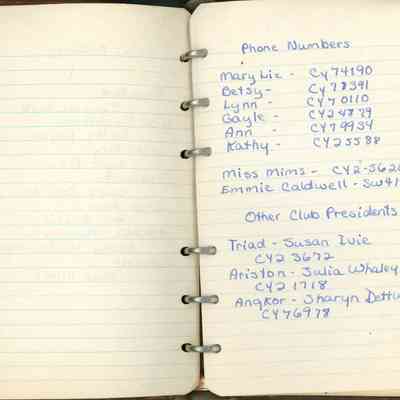 Phone Numbers
Mary Liz - CY74190
Betsy - CY78391
Lynn - CY70110
Gayle - CY24879
Ann - CY79934
Kathy - CY25588
Miss Mims - CY2-362
Emmie Caldwell - SW41
Other Club Presidents
Triad - Susan Ivie
CY2 3672
Ariston - Julia Whaley
CY2 1718
Angkor - Sharyn
CY76978